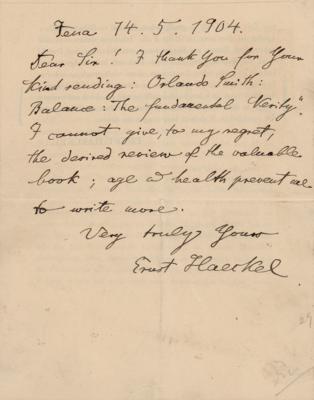 Jena 14. 5. 1904.
Dear Sir! I thank You for Your
kind sending: Orlando Smith:
Balance: The fundamental Verity".
I cannot give, to my regret,
the desired review of the valuable
book; age & health prevent me
to write more.
Very truly Yours
Ernst Haeckel